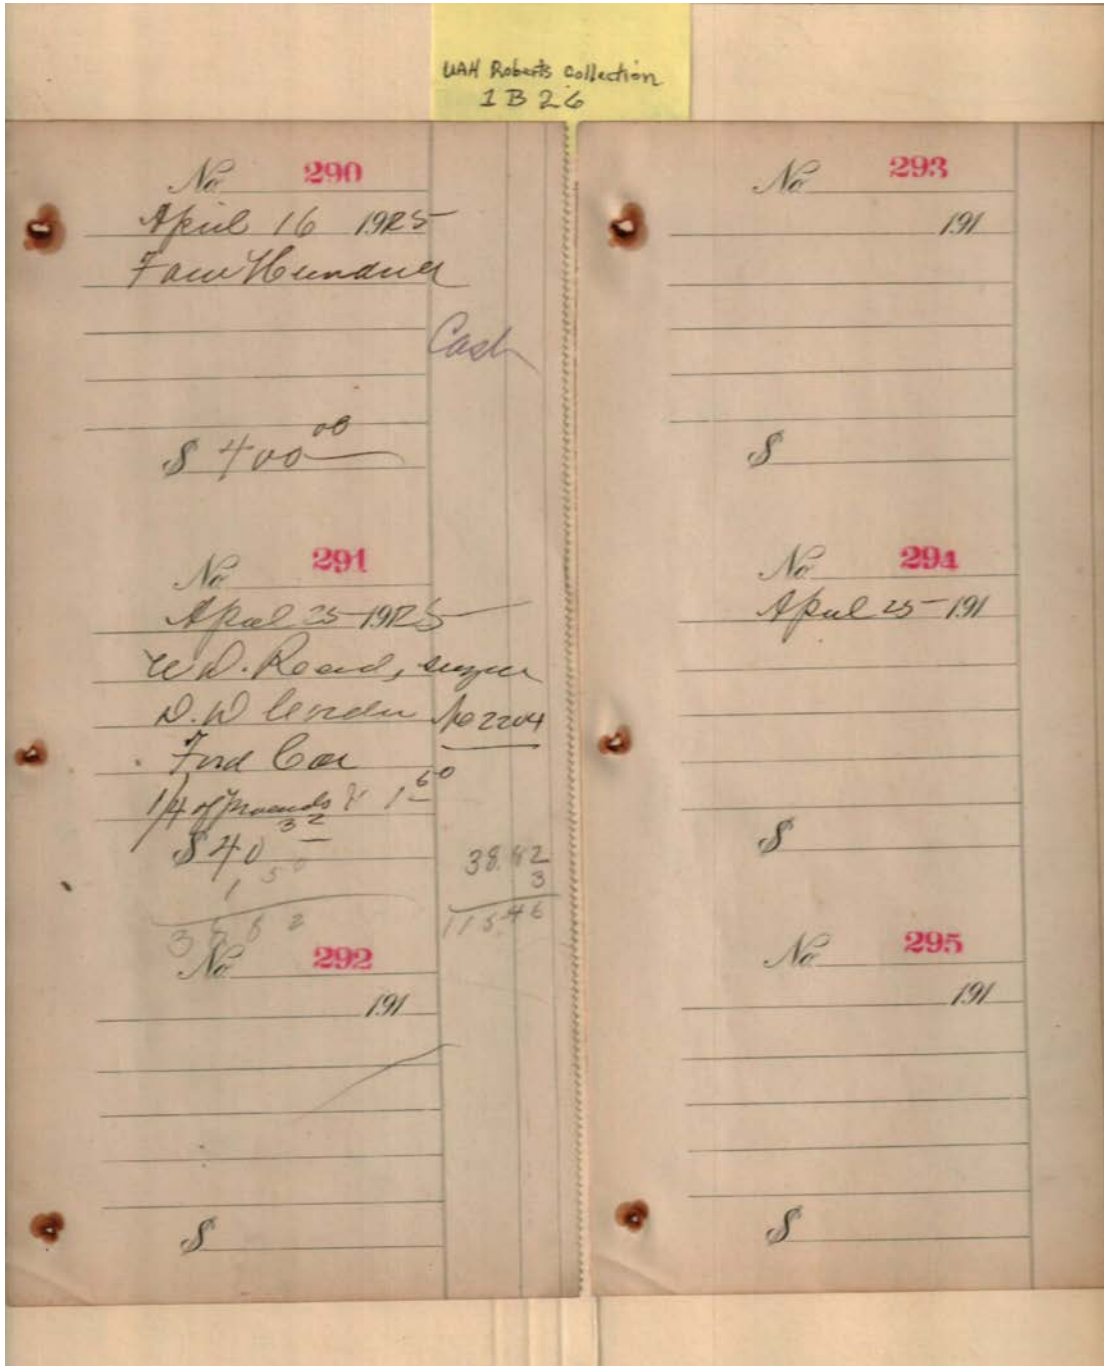 UAH Roberts Collection
1 B 26
No 290
April 16 1925
Four Hundred
Cash
$ 400 00
No 291
April 25-1925
W.D. Road,
D.W. No 2204
Ford Car
1/4 of 1 60
$ 40 32
1 50
38 82
38.82
3
115.46
No 292
191
$
No 293
191
$
No 294
April 25-191
$
No 295
191
$